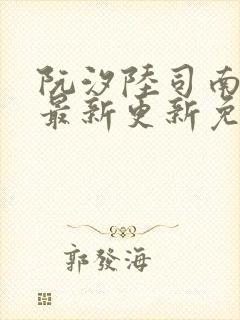 阮汐陸司南
最新更新免
郭發海